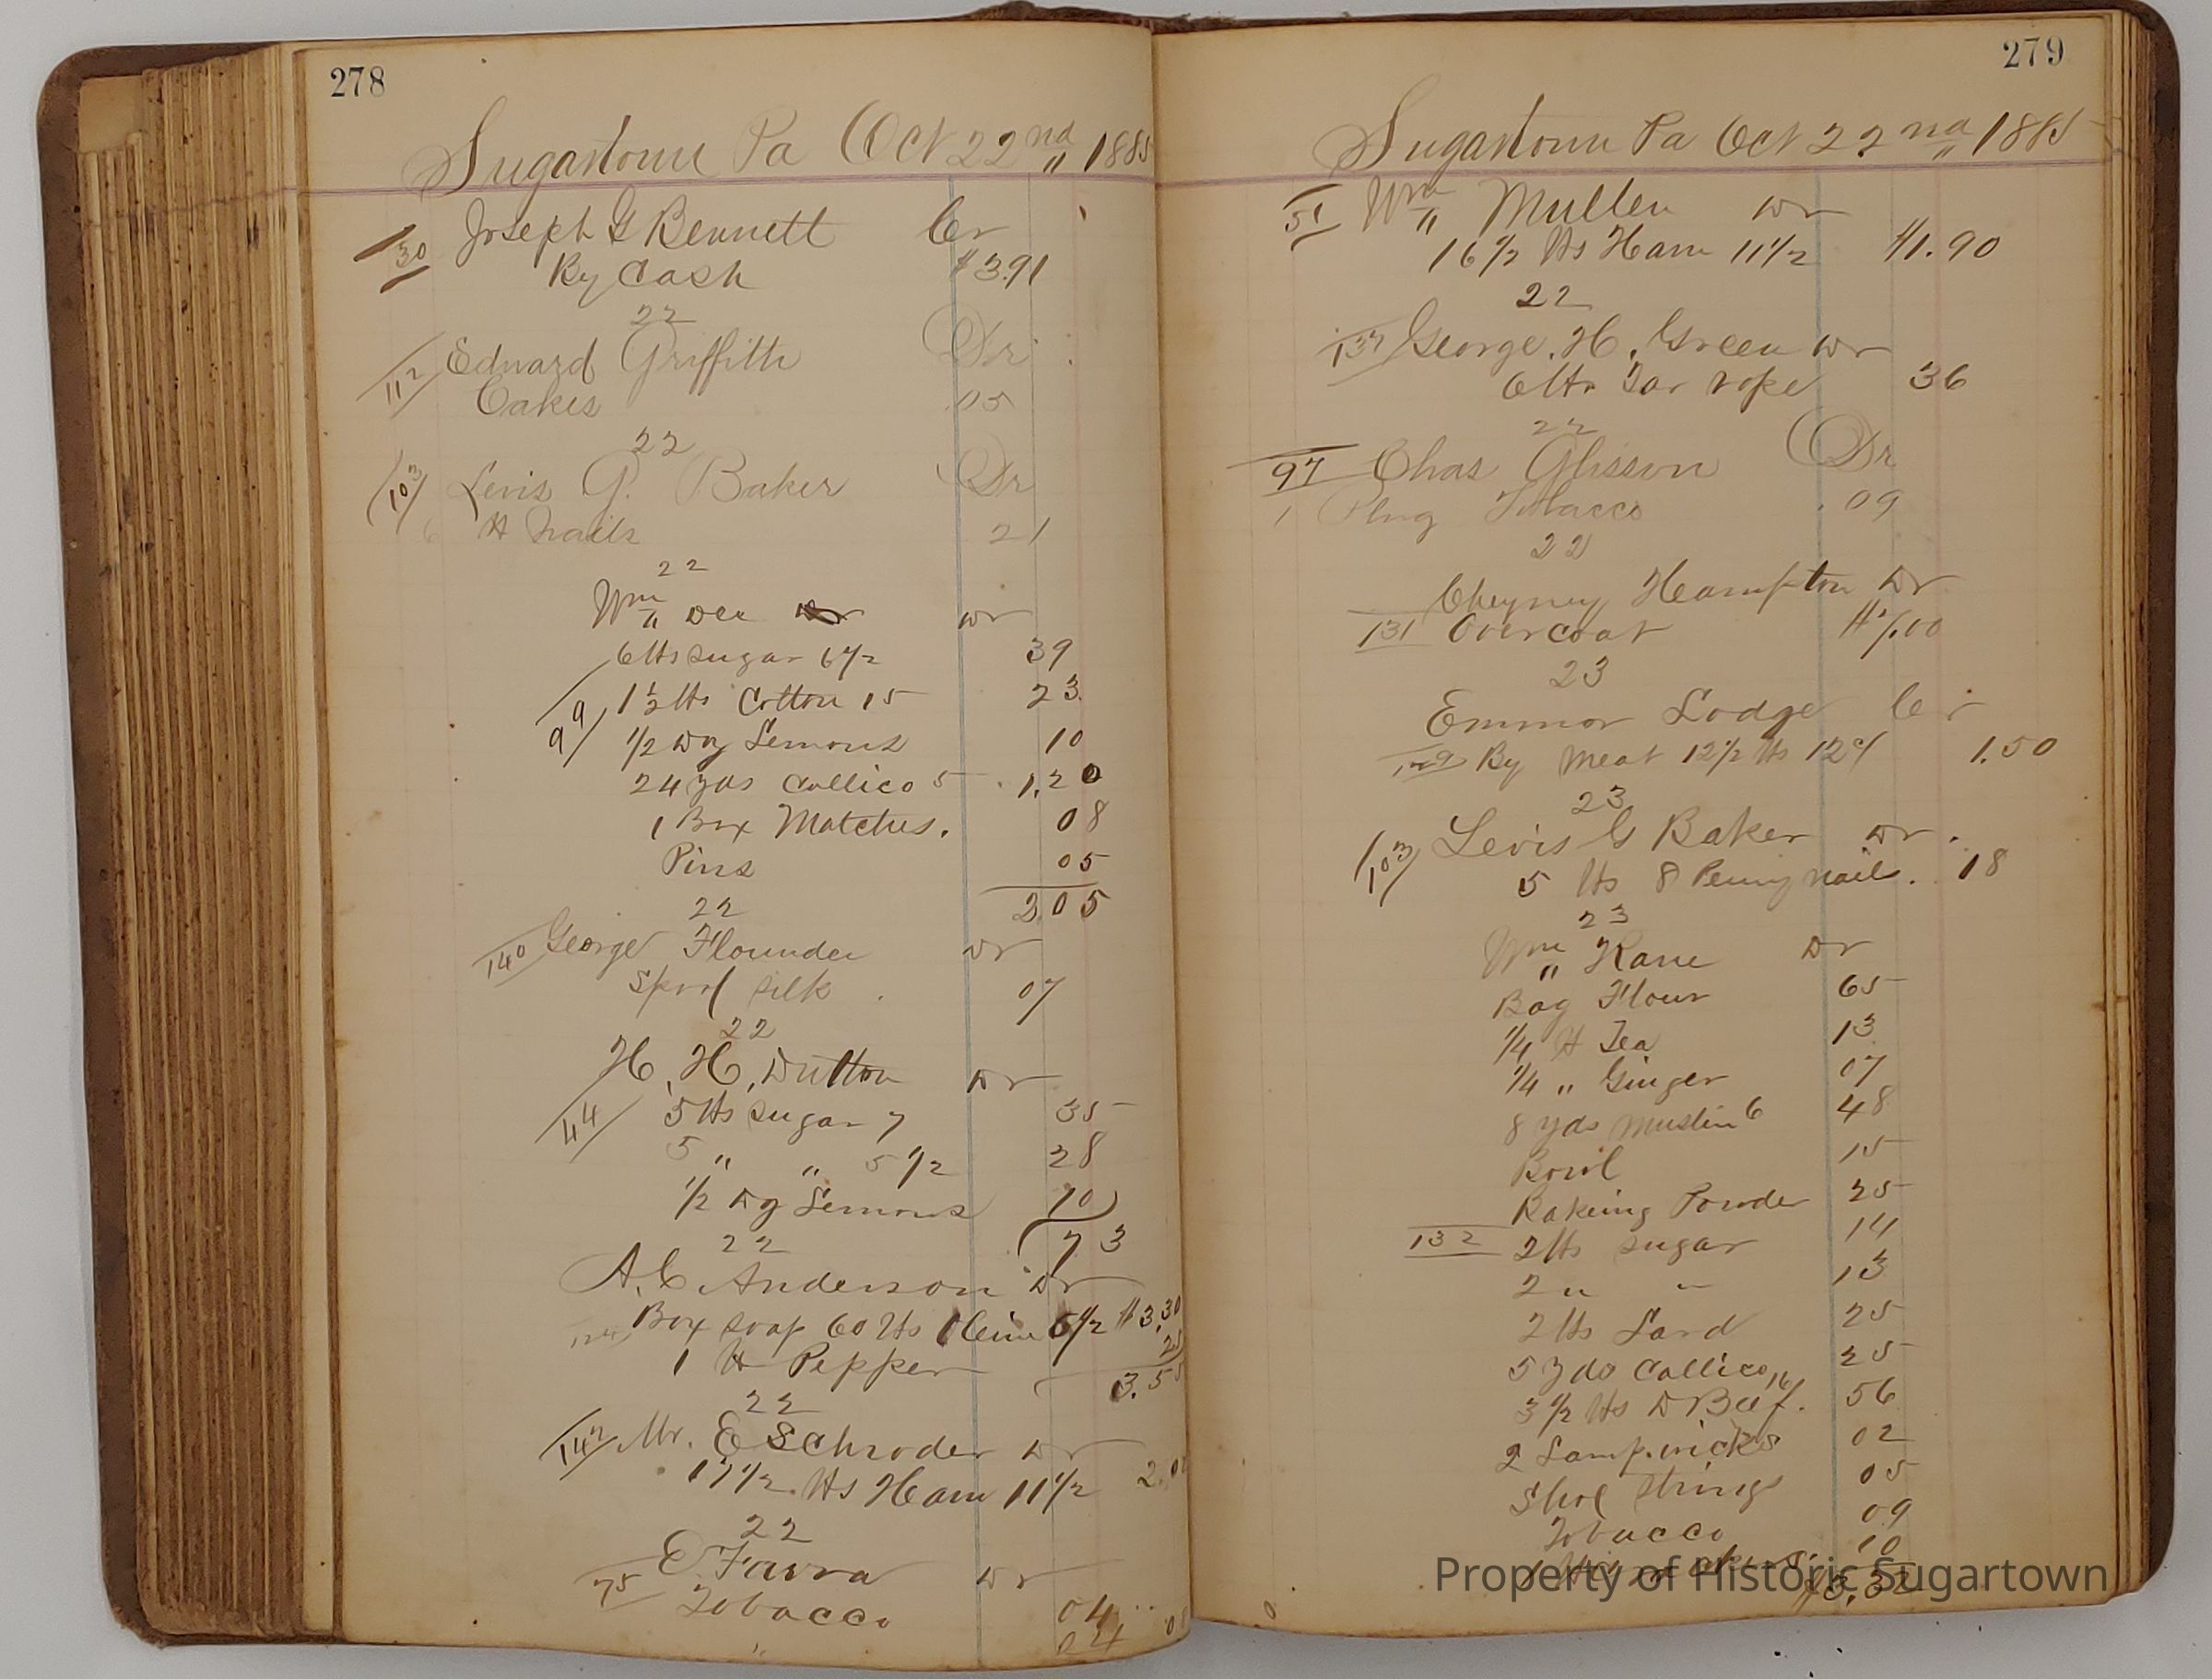 278
Sugartown Pa Oct 22nd " 1885
130 Joseph G Bennett Cr
By Cash $3.91
22
112 Edward Griffith Dr
Cakes .05
22
103 Levis G. Baker Dr
6 ℔ Nails 21
22
Wm " Dea Dr
6 ℔s Sugar 6 1/2 39
99 1 1/2 ℔s Cotton 15 23
1/2 Doz Lemons 10
24 yds Callico 5 1.20
1 Box Matches. 08
Pins 05
2.05
22
140 George Flounder Dr
Spool Silk 07
22
H. H. Dutton Dr
44 5 ℔s Sugar 7 35
5 " " 5 1/2 28
1/2 Dz Lemons 10
73
22
A. C Anderson Dr
Box Soap 60 ℔s 5 1/2 $3.30
1 ℔ Pepper 25
3.55
22
142 Mr. E Schroder Dr
17 1/2 ℔s Ham 11 1/2
22
E Farra Dr
75 Tobacco 04
279
Sugartown Pa Oct 22nd " 1885
51 Wm " Mullen Dr
16 1/2 ℔s Ham 11 1/2 $1.90
22
137 George. H. Green Dr
6 ℔s Tar rope 36
22
97 Chas Glisson Dr
1 Plug Tobacco .09
22
Cheyney Hampton Dr
131 Overcoat
23
Emmor Lodge Cr
By Meat 12 1/2 ℔s 12¢ 1.50
23
103 Levis G Baker Dr.
5 ℔s 8 Penny nails. .18
23
Wm " Kane Dr
Bag Flour 65
1/4 ℔ Tea 13
1/4 " Ginger 07
8 yds Muslin 6 48
Bowl 15
Bakeing Powder 25
132 2 ℔s Sugar 14
2 " " 13
2 ℔s Lard 25
5 yds Callico 25
3 1/2 ℔s D Beef. 16 56
2 Lamp wicks 02
Shoe Strings 05
Tobacco 09
10
$3.32
Property of Historic Sugartown